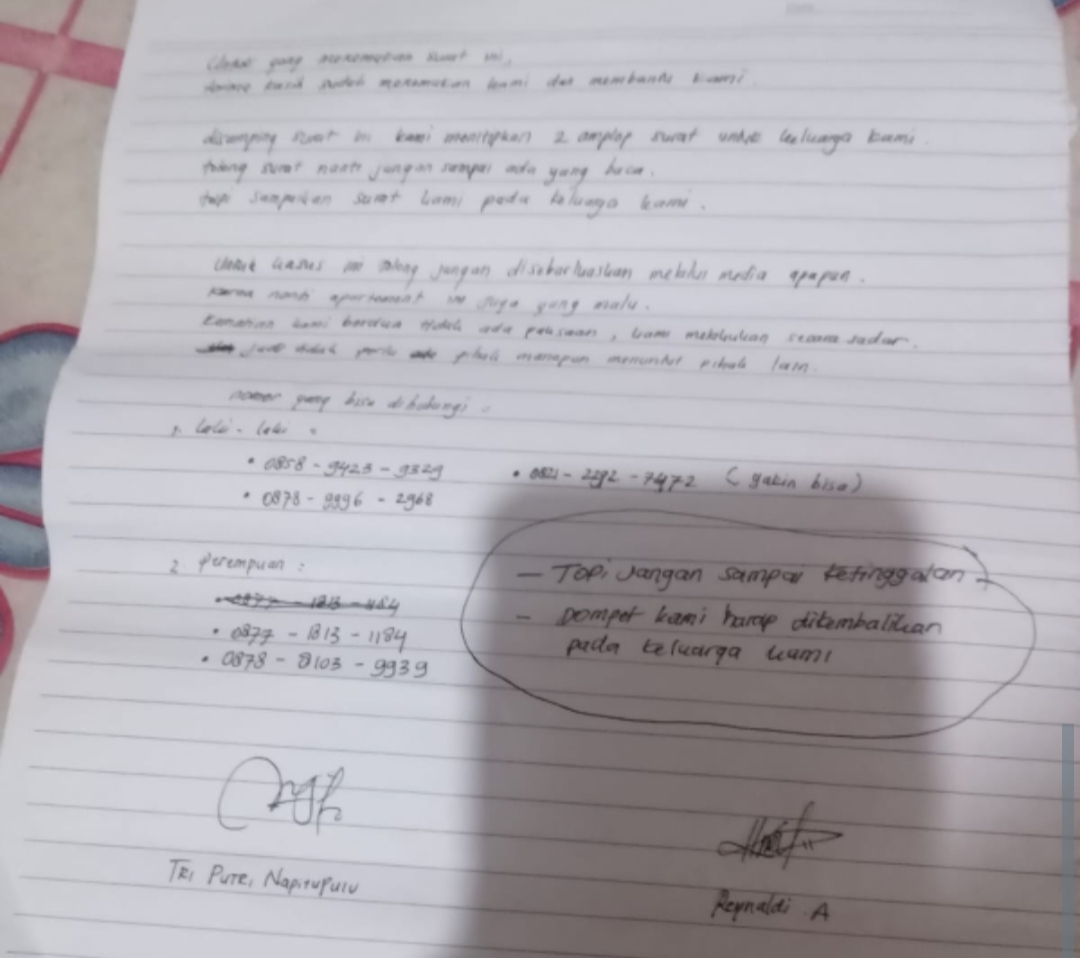 Untuk yang menemukan surat ini,
terima kasih sudah menemukan kami dan membantu kami.
disamping surat ini kami menitipkan 2 amplop surat untuk keluarga kami.
tolong surat nanti jangan sampai ada yang baca.
tapi sampaikan surat kami pada keluarga kami.
Untuk kasus ini tolong jangan disebarluaskan melalui media apapun.
Karena nanti apartement ini juga yang malu.
Kematian kami berdua tidak ada paksaan, kami melakukan secara sadar.
jadi tidak perlu pihak manapun menuntut pihak lain.
nomor yang bisa dihubungi :
1. Laki - laki :
• 0858 - 9423 - 9329 • 0821 - 2292 - 7472 (yakin bisa)
• 0878 - 9996 - 2968
2. perempuan :
• 0877 - 1313 - 1184
• 0878 - 8103 - 9939
— TOPi Jangan sampai ketinggalan
— Dompet kami harap dikembalikan
pada keluarga kami
TRI PUTRI NAPITUPULU
Reynaldi A